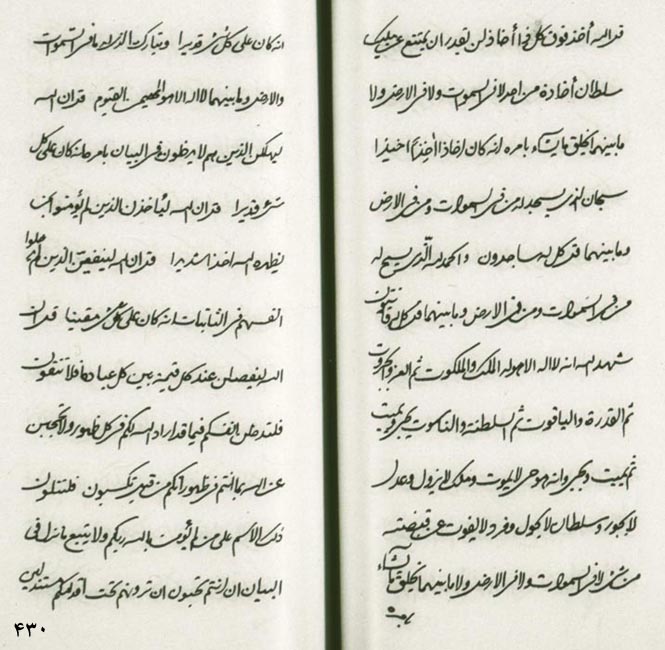 قل الله أخذ فوق كل ذا أخاذ لن يقدر ان يمتنع عن مليك
سلطان أخاذه من احد لا في السموات ولا في الارض ولا
ما بينهما يخلق ما يشاء بامره انه كان اخاذا آخذا اخيذا
سبحان الذي يسجد له من في السموات ومن في الارض
وما بينهما قل كل له ساجدون والحمد لله الذي يسبح له
من في السموات ومن في الارض وما بينهما قل كل له قانتون
شهد الله انه لا اله الا هو له الملك والملكوت ثم العز والجبروت
ثم القدرة والياقوت ثم السلطنة والناسوت يحيي ويميت
ثم يميت ويحيي وانه هو حي لا يموت وملك لا يزول وعدل
لا يجور وسلطان لا يحول وفرد لا يفوت عن قبضته
من شيء لا في السموات ولا في الارض ولا ما بينهما يخلق ما يشاء
بامره
انه كان على كل شيء قديرا وتبارك الذي له ما في السموات
والارض وما بينهما لا اله الا هو المهيمن القيوم قل ان الله
ليهلكن الذين هم لا يدخلون في البيان بامره انه كان على كل
شيء قديرا قل ان الله ليأخذن الذين لم يؤمنوا بمن
يظهره الله اخذا شديدا قل ان الله لينقصن الذين لم يدخلوا
انفسهم في الثابتات انه كان على كل شيء مقيتا قل ان
الله ليفصلن عند كل قيمة بين كل عباده أفلا تتقون
فلتدخلن انفسكم فيما قد اراد الله لكم في كل ظهور ولا تحتجبن
عن الله بما انتم في ظهور انكم من قبل تكسبون فلتتلون
ذلك الاسم على من لم يؤمن بالله ربكم ولا يتبع ما نزل في
البيان ان انتم تحبون ان ترونهم تحت اقدامكم مستذلين
۴۳۰